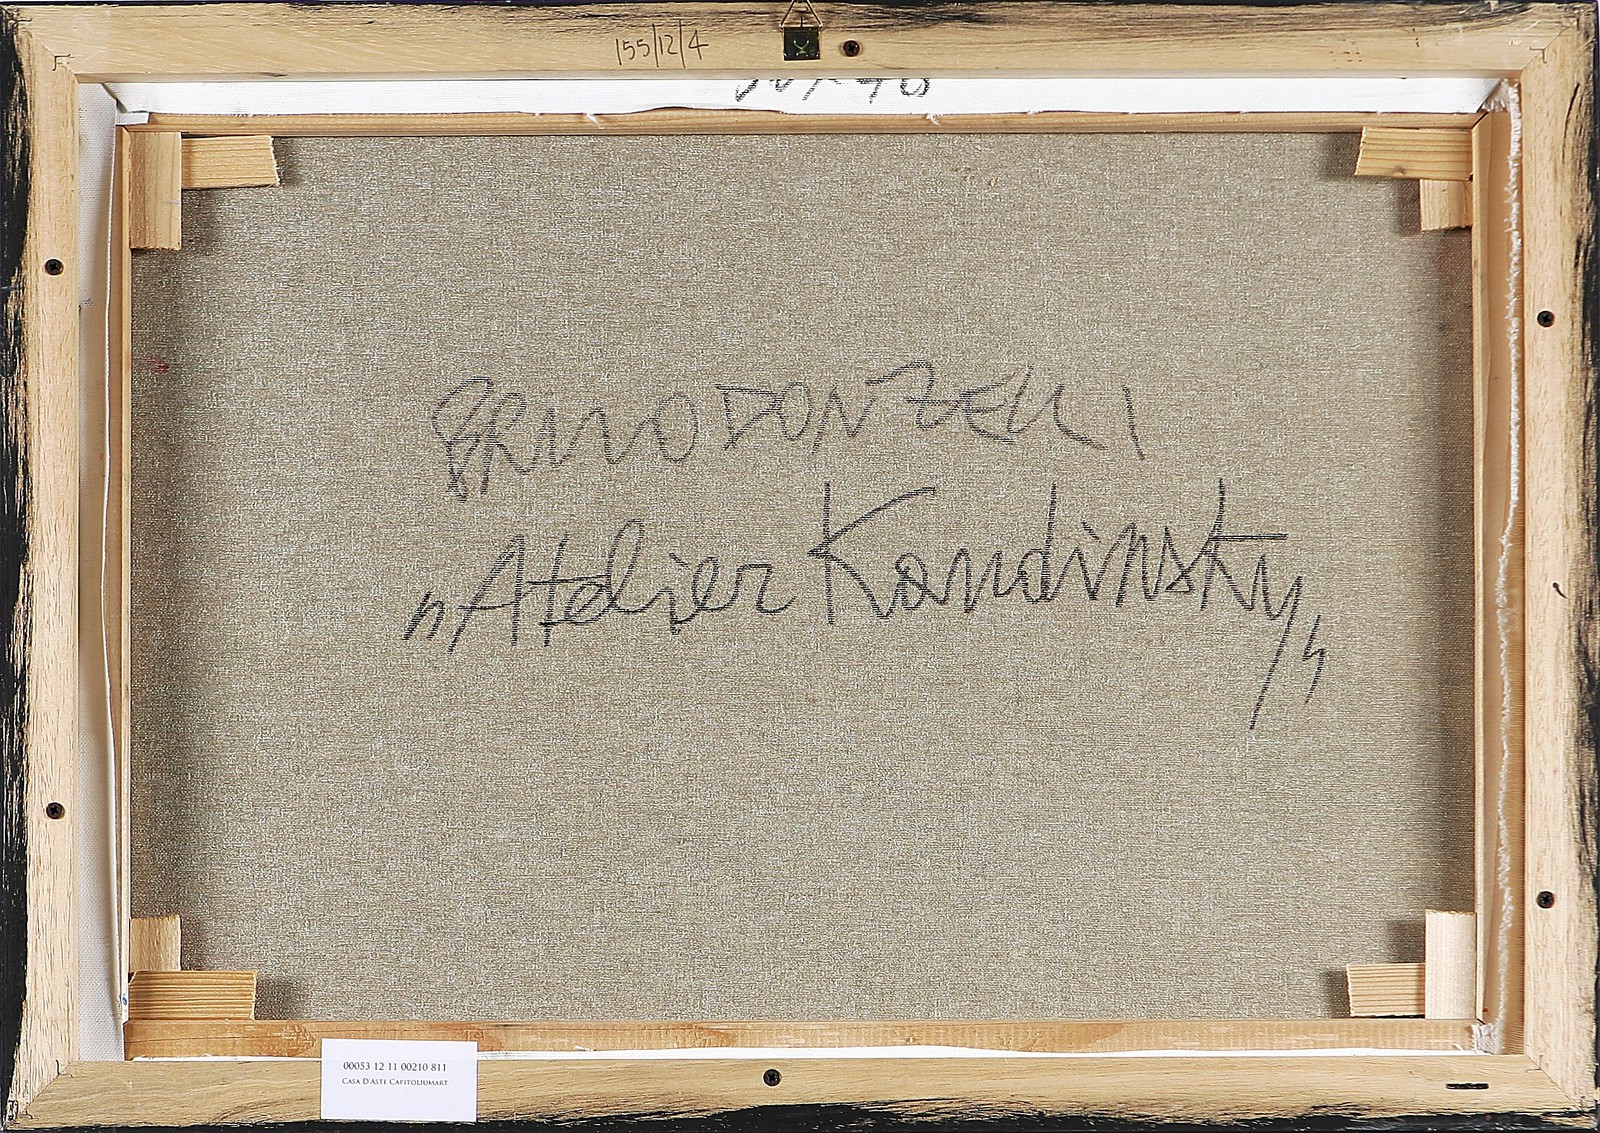 155/12/4
BRUNO DONZELLI
"Atelier Kandinsky"
00053 12 11 00210 811
CASA D'ASTE CAPITOLIUMART